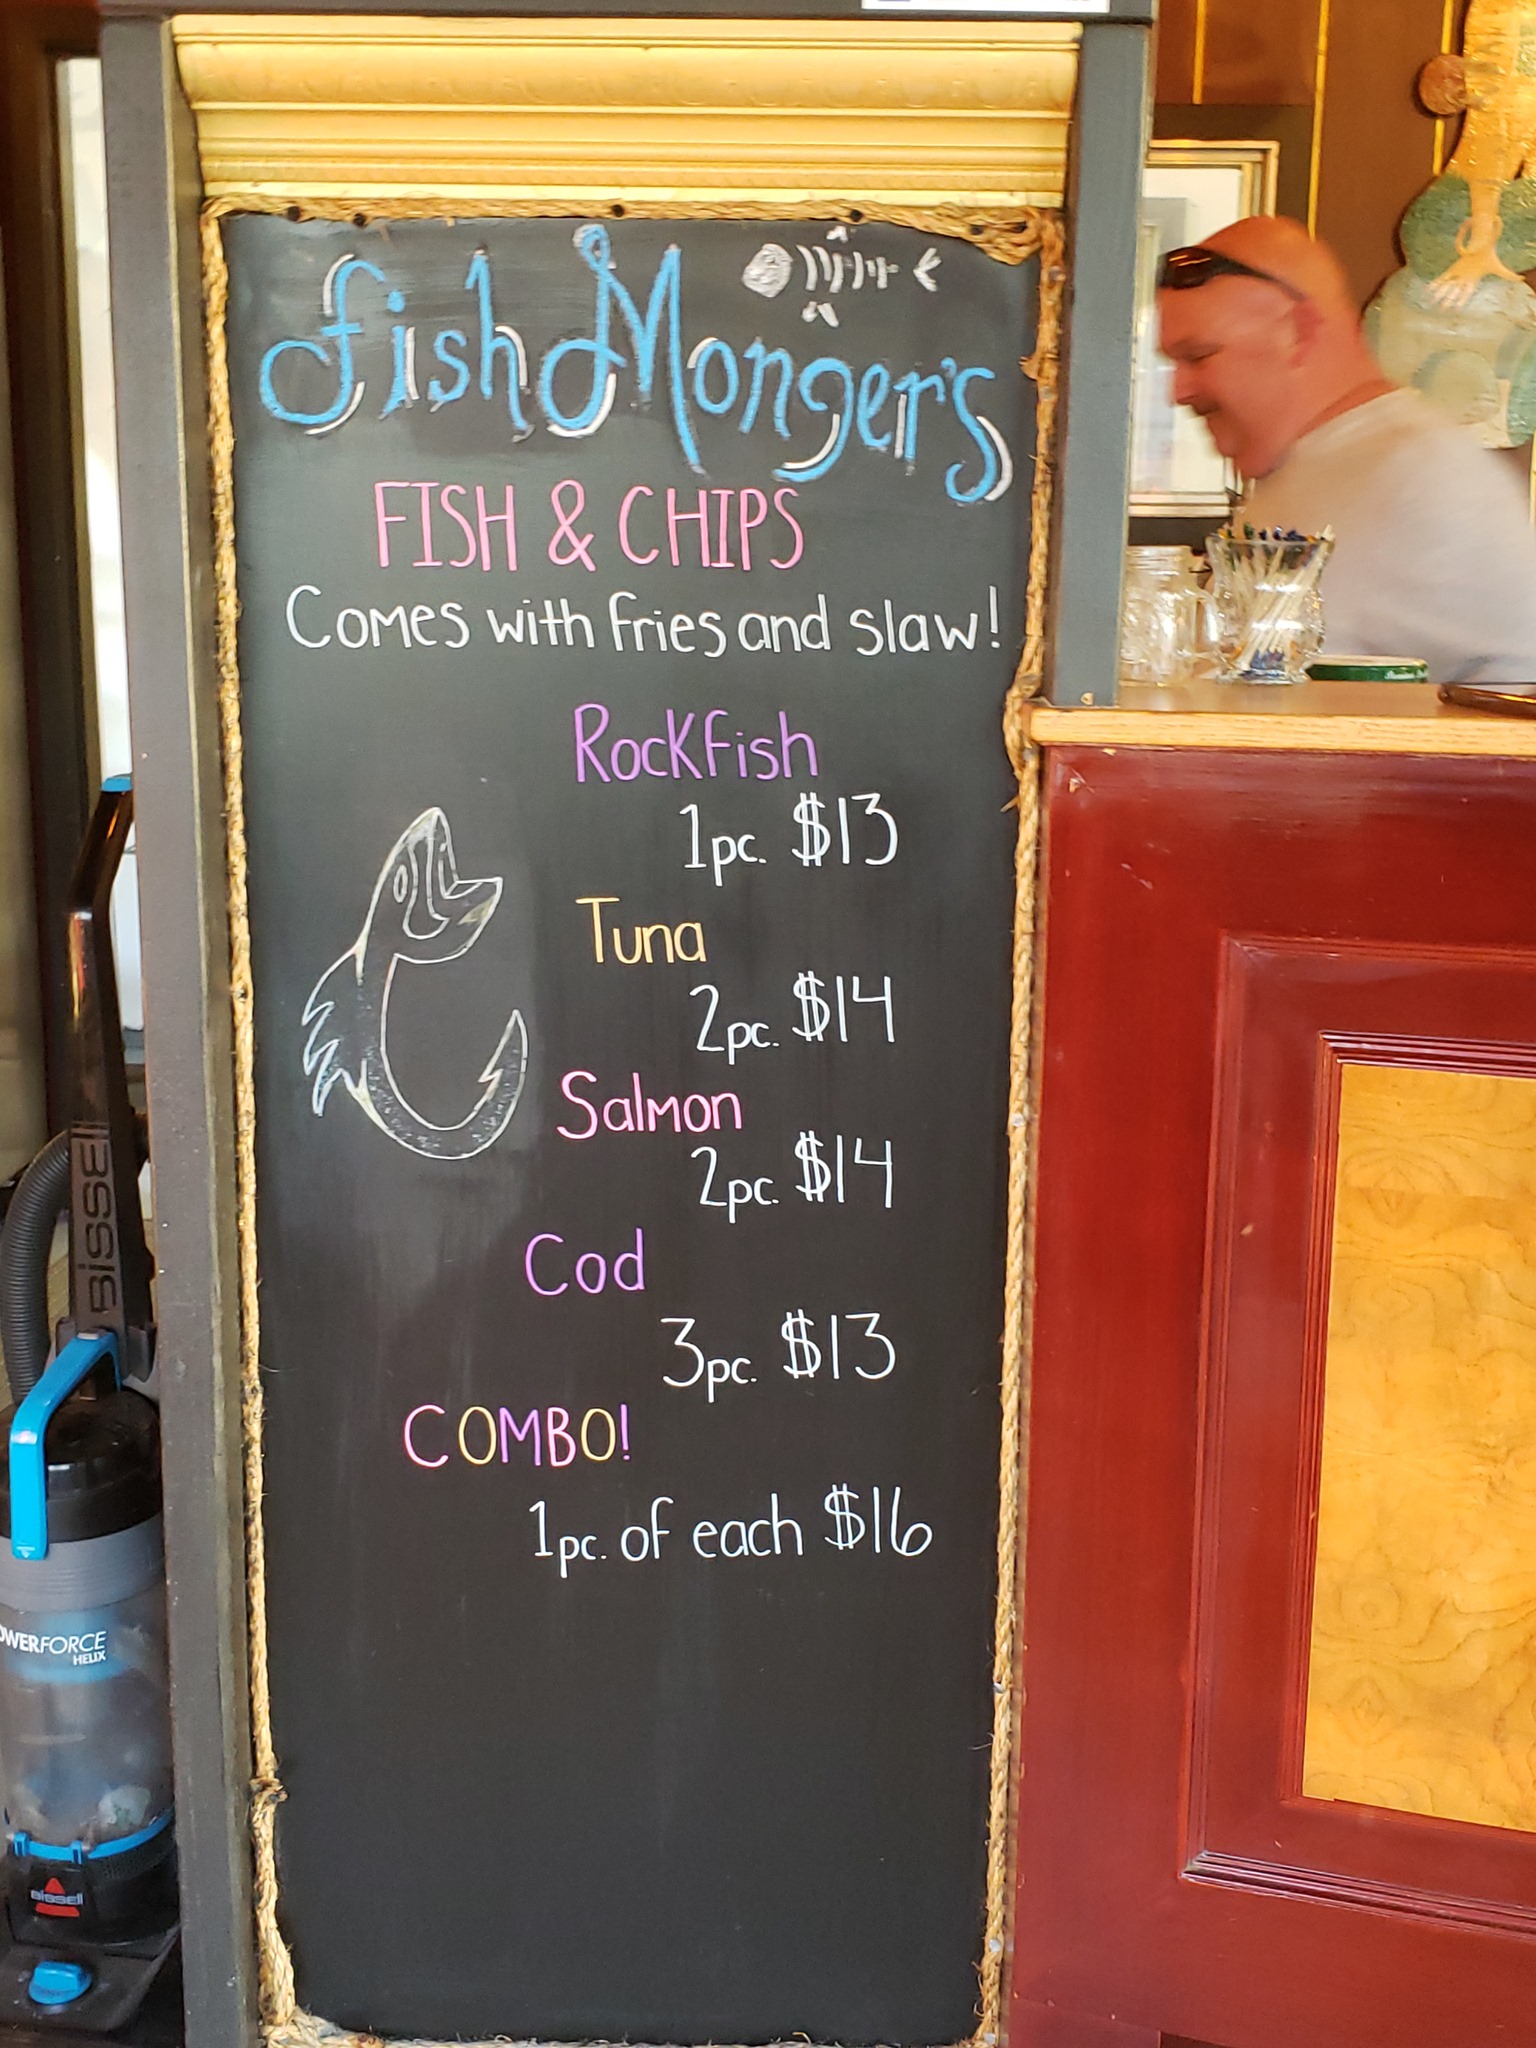 fish Monger's
FISH & CHIPS
Comes with fries and slaw!
Rockfish
1pc. $13
Tuna
2pc. $14
Salmon
2pc. $14
Cod
3pc. $13
COMBO!
1pc. of each $16
BISSELL
POWERFORCE
HELIX
BISSELL